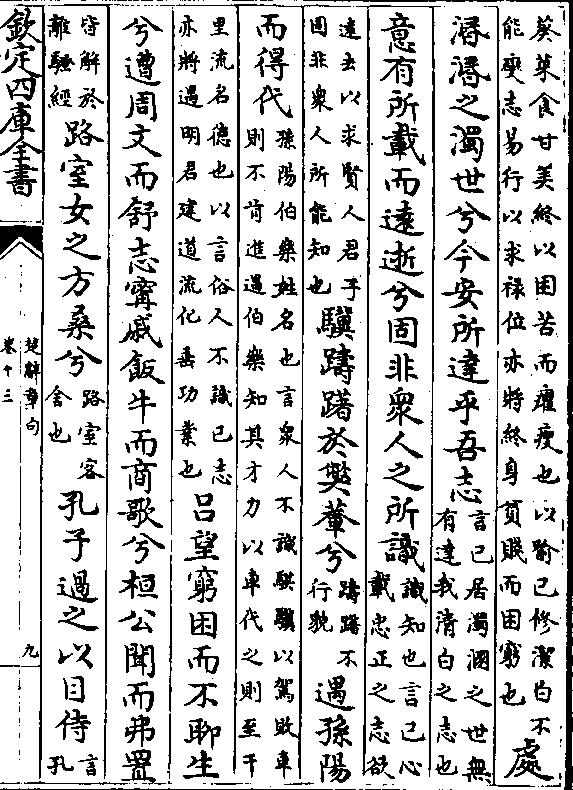 葵菜食甘美終以困苦而癯瘦也以喻己修潔白不
能變志易行以求祿位亦將終身貧賤而困窮也
處
湣湣之濁世兮今安所達乎吾志
言己居濁溷之世無
有達我清白之志也
意有所載而遠逝兮固非衆人之所識
識知也言己心
載忠正之志欲
遠去以求賢人君子
固非衆人所能知也
驥躊躇於樊輂兮
躊躇不
行貌
遇孫陽
而得代
孫陽伯樂姓名也言衆人不識騏驥以駕敗車
則不肯進遇伯樂知其才力以車代之則至千
里流名德也以言俗人不識己志
亦將遇明君建道流化垂功業也
呂望窮困而不聊生
兮遭周文而舒志甯戚飯牛而商歌兮桓公聞而弗置
皆解於
離騷經
路室女之方桑兮
路室客
舍也
孔子過之以自侍
言
孔
欽定四庫全書
楚辭章句
卷十三
九